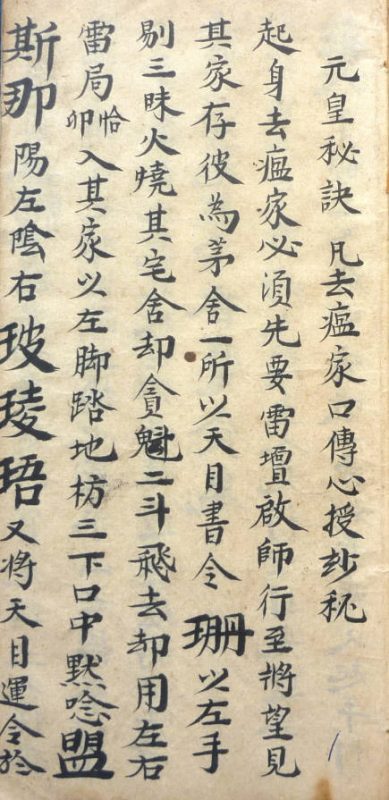 元皇秘訣 凡去瘟家口傳心授玅秘
起身去瘟家必須先要雷壇啟師行至將望見
其家存彼為茅舍一所以天目書令 珊 以左手
剔三昧火燒其宅舍却貪魁二斗飛去却用左右
雷局恰卯入其家以左脚踏地枋三下口中默唸盟
斯那 陽左陰右 玻琦珸 又將天目運令於